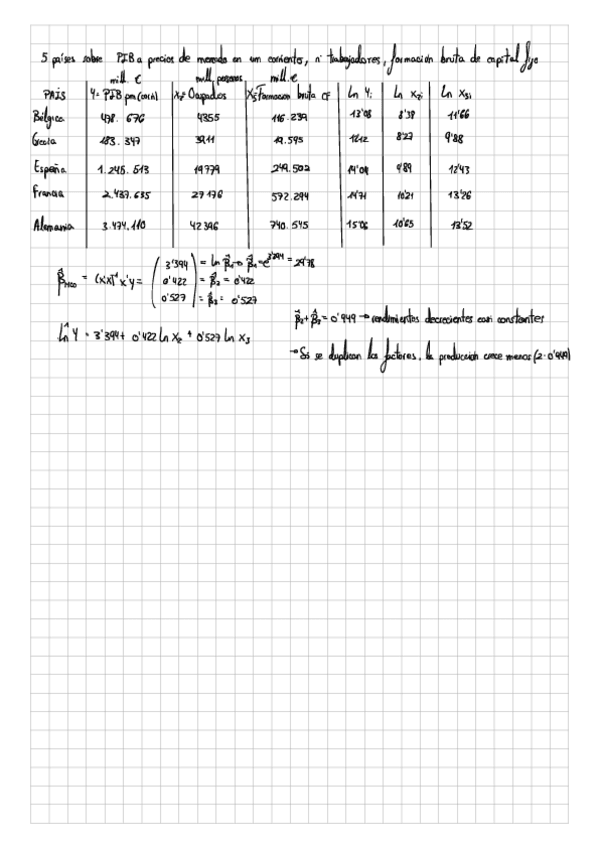 5 países sobre PIB a precios de mercado en um corrientes, nº trabajadores, formación bruta de capital fijo
mill. € mill. personas mill. €
PAÍS Y = PIB pm (corr) X₂ Ocupados X₃ Formacion bruta CF Ln Yi Ln X₂i Ln X₃i
Bélgica 478.676 4355 116.239 13'08 8'38 11'66
Grecia 183.347 3911 19.595 12'12 8'27 9'88
España 1.245.513 19779 249.502 14'04 9'89 12'43
Francia 2.437.635 27176 572.294 14'71 10'21 13'26
Alemania 3.474.110 42396 740.545 15'06 10'65 13'52
β̂MCO = (X'X)⁻¹ X'Y = ( 3'394 ) = Ln β̂₁ → β̂₁ = e^3'394 = 29'78
( 0'422 ) = β̂₂ = 0'422
( 0'527 ) = β̂₃ = 0'527
β̂₂ + β̂₃ = 0'949 → rendimientos decrecientes casi constantes
Ln̂ Y = 3'394 + 0'422 Ln X₂ + 0'527 Ln X₃
→ Si se duplican los factores, la producción crece menos (2·0'949)